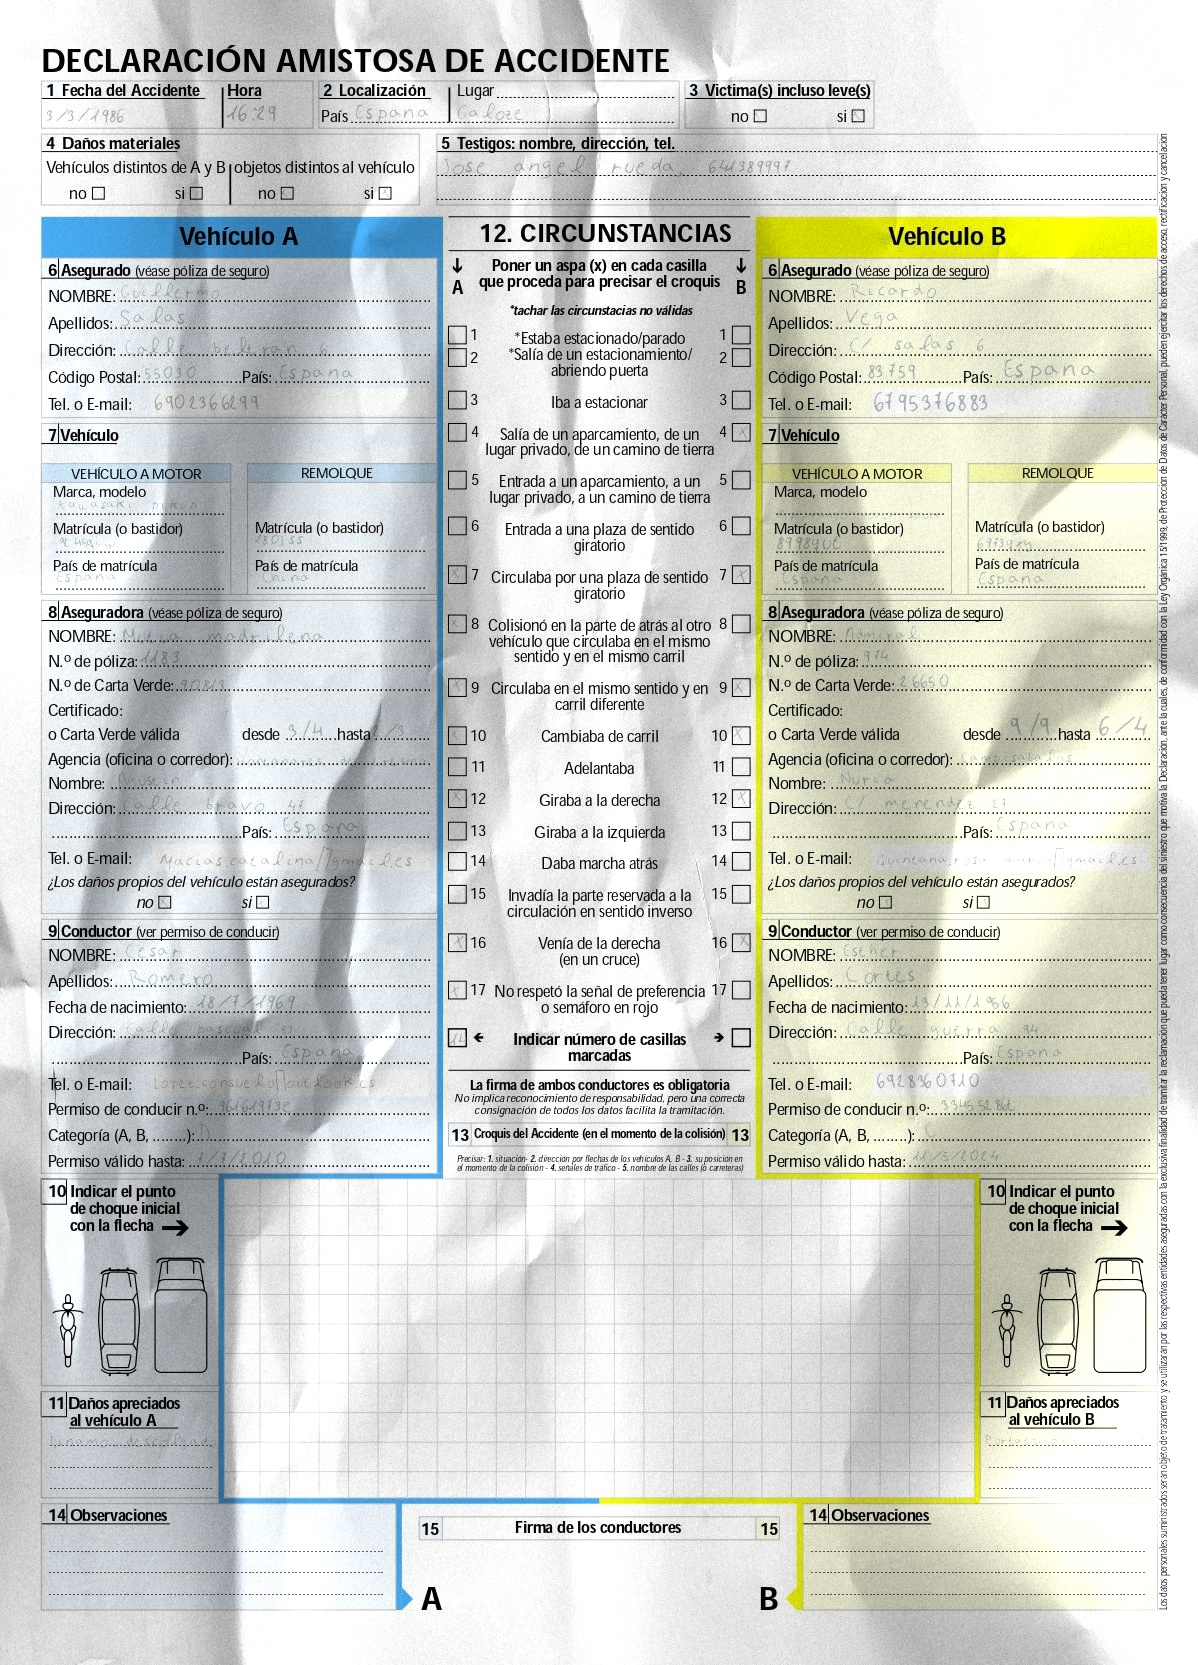 DECLARACIÓN AMISTOSA DE ACCIDENTE
1 Fecha del Accidente Hora 2 Localización Lugar 3 Victima(s) incluso leve(s)
3/3/1986 16:29 País España no si
4 Daños materiales
Vehículos distintos de A y B objetos distintos al vehículo
no si no si
5 Testigos: nombre, dirección, tel.
Jose angel rueda 641389997
Vehículo A
6 Asegurado (véase póliza de seguro)
NOMBRE: Guillermo
Apellidos: Salas
Dirección: Calle beltran 6
Código Postal: 55030 País: España
Tel. o E-mail: 6902366299
7 Vehículo
VEHÍCULO A MOTOR REMOLQUE
Marca, modelo
Kawasaki
Matrícula (o bastidor) Matrícula (o bastidor)
País de matrícula País de matrícula
España China
8 Aseguradora (véase póliza de seguro)
NOMBRE: Mutua madrileña
N.º de póliza: 1183
N.º de Carta Verde:
Certificado:
o Carta Verde válida desde 3/4 hasta
Agencia (oficina o corredor):
Nombre:
Dirección: Calle bravo 47
País: España
Tel. o E-mail:
¿Los daños propios del vehículo están asegurados?
no si
9 Conductor (ver permiso de conducir)
NOMBRE: Cesar
Apellidos: Romero
Fecha de nacimiento: 18/7/1969
Dirección: Calle pascual
País: España
Tel. o E-mail:
Permiso de conducir n.º:
Categoría (A, B, ........):
Permiso válido hasta: 7/7/2010
12. CIRCUNSTANCIAS
A Poner un aspa (x) en cada casilla B
que proceda para precisar el croquis
*tachar las circunstacias no válidas
1 *Estaba estacionado/parado 1
2 *Salía de un estacionamiento/ 2
abriendo puerta
3 Iba a estacionar 3
4 Salía de un aparcamiento, de un 4
lugar privado, de un camino de tierra
5 Entrada a un aparcamiento, a un 5
lugar privado, a un camino de tierra
6 Entrada a una plaza de sentido 6
giratorio
7 Circulaba por una plaza de sentido 7
giratorio
8 Colisionó en la parte de atrás al otro 8
vehículo que circulaba en el mismo
sentido y en el mismo carril
9 Circulaba en el mismo sentido y en 9
carril diferente
10 Cambiaba de carril 10
11 Adelantaba 11
12 Giraba a la derecha 12
13 Giraba a la izquierda 13
14 Daba marcha atrás 14
15 Invadía la parte reservada a la 15
circulación en sentido inverso
16 Venía de la derecha 16
(en un cruce)
17 No respetó la señal de preferencia 17
o semáforo en rojo
Indicar número de casillas
marcadas
La firma de ambos conductores es obligatoria
No implica reconocimiento de responsabilidad, pero una correcta
consignación de todos los datos facilita la tramitación.
13 Croquis del Accidente (en el momento de la colisión) 13
Precisar: 1. situación- 2. dirección por flechas de los vehículos A, B - 3. su posición en
el momento de la colisión - 4. señales de tráfico - 5. nombre de las calles (o carreteras)
Vehículo B
6 Asegurado (véase póliza de seguro)
NOMBRE: Ricardo
Apellidos: Vega
Dirección: C/ salas 6
Código Postal: 83759 País: España
Tel. o E-mail: 6795376883
7 Vehículo
VEHÍCULO A MOTOR REMOLQUE
Marca, modelo
Matrícula (o bastidor) Matrícula (o bastidor)
País de matrícula País de matrícula
España España
8 Aseguradora (véase póliza de seguro)
NOMBRE: Admiral
N.º de póliza: 974
N.º de Carta Verde: 26650
Certificado:
o Carta Verde válida desde 9/9 hasta 6/4
Agencia (oficina o corredor):
Nombre: Nuria
Dirección: C/ menendez 27
País: España
Tel. o E-mail:
¿Los daños propios del vehículo están asegurados?
no si
9 Conductor (ver permiso de conducir)
NOMBRE: Esther
Apellidos: Cortes
Fecha de nacimiento: 13/11/1966
Dirección: Calle guerra 94
País: España
Tel. o E-mail: 6928360710
Permiso de conducir n.º:
Categoría (A, B, ........):
Permiso válido hasta: 11/5/2024
10 Indicar el punto
de choque inicial
con la flecha
11 Daños apreciados
al vehículo A
10 Indicar el punto
de choque inicial
con la flecha
11 Daños apreciados
al vehículo B
14 Observaciones
15 Firma de los conductores 15
A B
14 Observaciones
Los datos personales suministrados seran objeto de tratamiento y se utilizaran por las respectivas entidades aseguradas con la exclusiva finalidad de tramitar la reclamación que pueda tener lugar como consecuencia del siniestro que motiva la Declaración, ante la cuales, de conformidad con la Ley Orgánica 15/1999, de Protección de Datos de Carácter Personal, pueden ejercitar los derechos de acceso, rectificación y cancelación